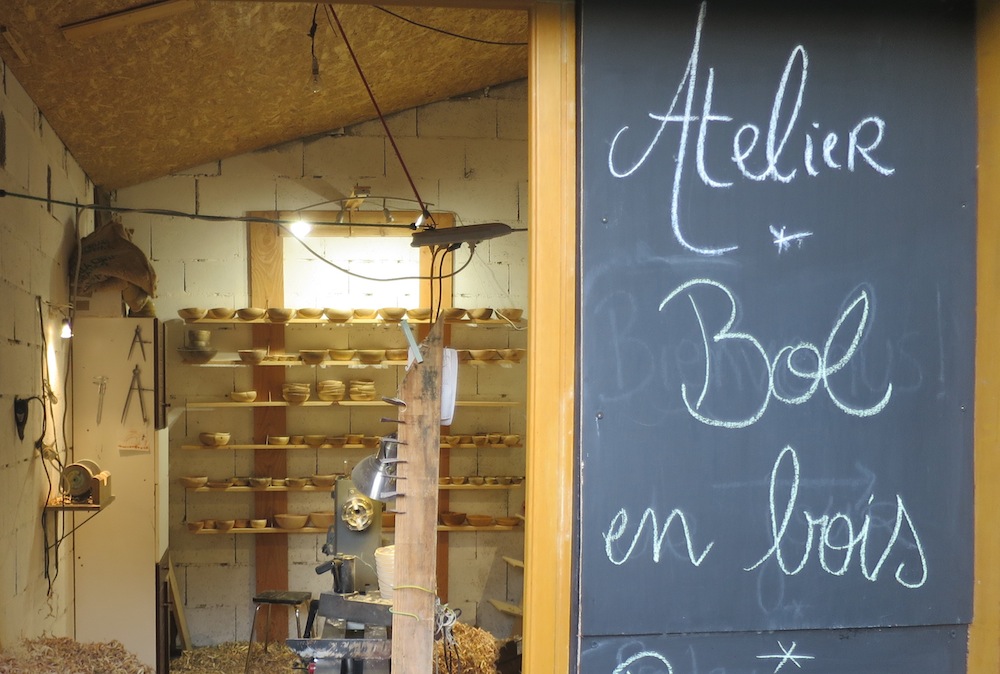 Atelier
*
Bol
en bois